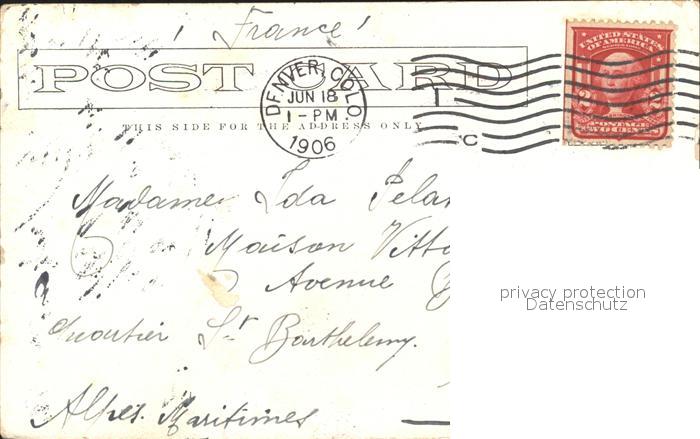 France
POST CARD
DENVER, COLO.
JUN 18
1-PM
1906
C
UNITED STATES
OF AMERICA
POSTAGE
TWO CENTS
2 2
THIS SIDE FOR THE ADDRESS ONLY
Madame Ida
Maison
Avenue
Quartier St Barthelemy.
Alpes. Maritimes
privacy protection
Datenschutz